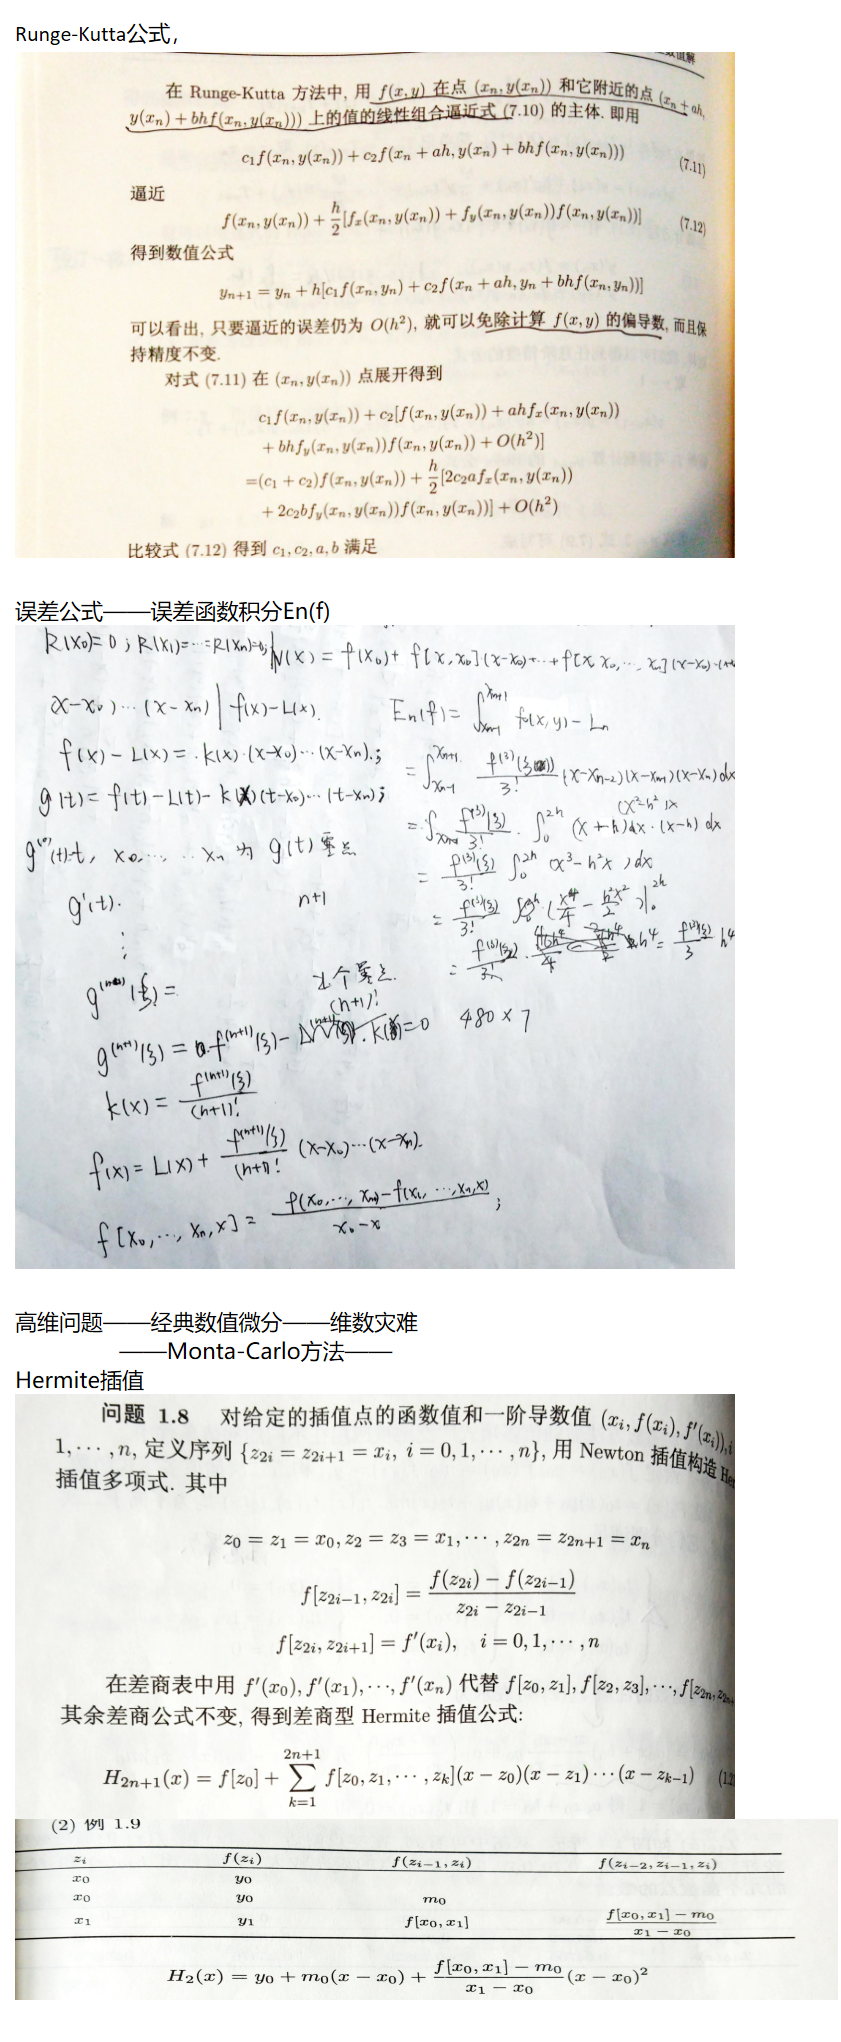 Runge-Kutta公式，
在 Runge-Kutta 方法中, 用 f(x,y) 在点 (xₙ, y(xₙ)) 和它附近的点 (xₙ + ah,
y(xₙ) + bhf(xₙ, y(xₙ))) 上的值的线性组合逼近式 (7.10) 的主体. 即用
c₁f(xₙ, y(xₙ)) + c₂f(xₙ + ah, y(xₙ) + bhf(xₙ, y(xₙ))) (7.11)
逼近
f(xₙ, y(xₙ)) + h/2[fₓ(xₙ, y(xₙ)) + f_y(xₙ, y(xₙ))f(xₙ, y(xₙ))] (7.12)
得到数值公式
yₙ₊₁ = yₙ + h[c₁f(xₙ, yₙ) + c₂f(xₙ + ah, yₙ + bhf(xₙ, yₙ))]
可以看出, 只要逼近的误差仍为 O(h²), 就可以免除计算 f(x,y) 的偏导数, 而且保
持精度不变.
对式 (7.11) 在 (xₙ, y(xₙ)) 点展开得到
c₁f(xₙ, y(xₙ)) + c₂[f(xₙ, y(xₙ)) + ahfₓ(xₙ, y(xₙ))
+ bhf_y(xₙ, y(xₙ))f(xₙ, y(xₙ)) + O(h²)]
=(c₁ + c₂)f(xₙ, y(xₙ)) + h/2[2c₂afₓ(xₙ, y(xₙ))
+ 2c₂bf_y(xₙ, y(xₙ))f(xₙ, y(xₙ))] + O(h²)
比较式 (7.12) 得到 c₁, c₂, a, b 满足
误差公式——误差函数积分En(f)
R(x₀)=0; R(x₁)=…=R(xₙ)=0;
f(x)-L(x).
f(x)-L(x)= k(x)·(x-x₀)…(x-xₙ).;
g(t)= f(t)-L(t)- k(x)(t-x₀)…(t-xₙ);
x₀, … xₙ 为 g(t) 零点
g'(t). n+1
⋮
个零点.
(n+1)!
480×7
k(x)= f⁽ⁿ⁺¹⁾(ξ)/(n+1)!
f(x)= L(x)+ f⁽ⁿ⁺¹⁾(ξ)/(n+1)! (x-x₀)…(x-xₙ).
f[x₀,…, xₙ,x]=
Eₙ(f)=
= f⁽³⁾(ξ)/3! ∫₀²ʰ (x³-h²x)dx
高维问题——经典数值微分——维数灾难
——Monta-Carlo方法——
Hermite插值
问题 1.8 对给定的插值点的函数值和一阶导数值 (xᵢ, f(xᵢ), f′(xᵢ)), i
1, ⋯ , n, 定义序列 {z₂ᵢ = z₂ᵢ₊₁ = xᵢ, i = 0, 1, ⋯ , n}, 用 Newton 插值构造
插值多项式. 其中
z₀ = z₁ = x₀, z₂ = z₃ = x₁, ⋯ , z₂ₙ = z₂ₙ₊₁ = xₙ
f[z₂ᵢ₋₁, z₂ᵢ] = (f(z₂ᵢ) − f(z₂ᵢ₋₁))/(z₂ᵢ − z₂ᵢ₋₁)
f[z₂ᵢ, z₂ᵢ₊₁] = f′(xᵢ), i = 0, 1, ⋯ , n
在差商表中用 f′(x₀), f′(x₁), ⋯, f′(xₙ) 代替 f[z₀, z₁], f[z₂, z₃], ⋯,
其余差商公式不变, 得到差商型 Hermite 插值公式:
H₂ₙ₊₁(x) = f[z₀] + ∑ₖ₌₁²ⁿ⁺¹ f[z₀, z₁, ⋯ , zₖ](x − z₀)(x − z₁) ⋯ (x − zₖ₋₁)
(2) 例 1.9
zᵢ f(zᵢ) f(zᵢ₋₁, zᵢ) f(zᵢ₋₂, zᵢ₋₁, zᵢ)
x₀ y₀
x₀ y₀ m₀
x₁ y₁ f[x₀, x₁] (f[x₀, x₁] − m₀)/(x₁ − x₀)
H₂(x) = y₀ + m₀(x − x₀) + (f[x₀, x₁] − m₀)/(x₁ − x₀) (x − x₀)²